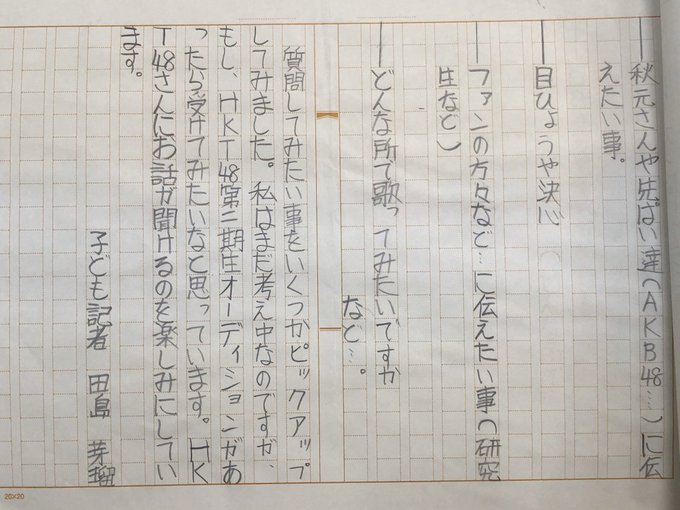 秋元さんや先ぱい達(AKB48…)に伝
えたい事。
目ひょうや決心
ファンの方々など…に伝えたい事(研究
生など)
どんな所で歌ってみたいですか
など…。
質問してみたい事をいくつかピックアップ
してみました。私はまだ考え中なのですが、
もし、HKT48第二期生オーディションがあ
ったら受けてみたいなと思っています。HK
T48さんにお話が聞けるのを楽しみにしてい
ます。
子ども記者 田島 芽瑠
20×20